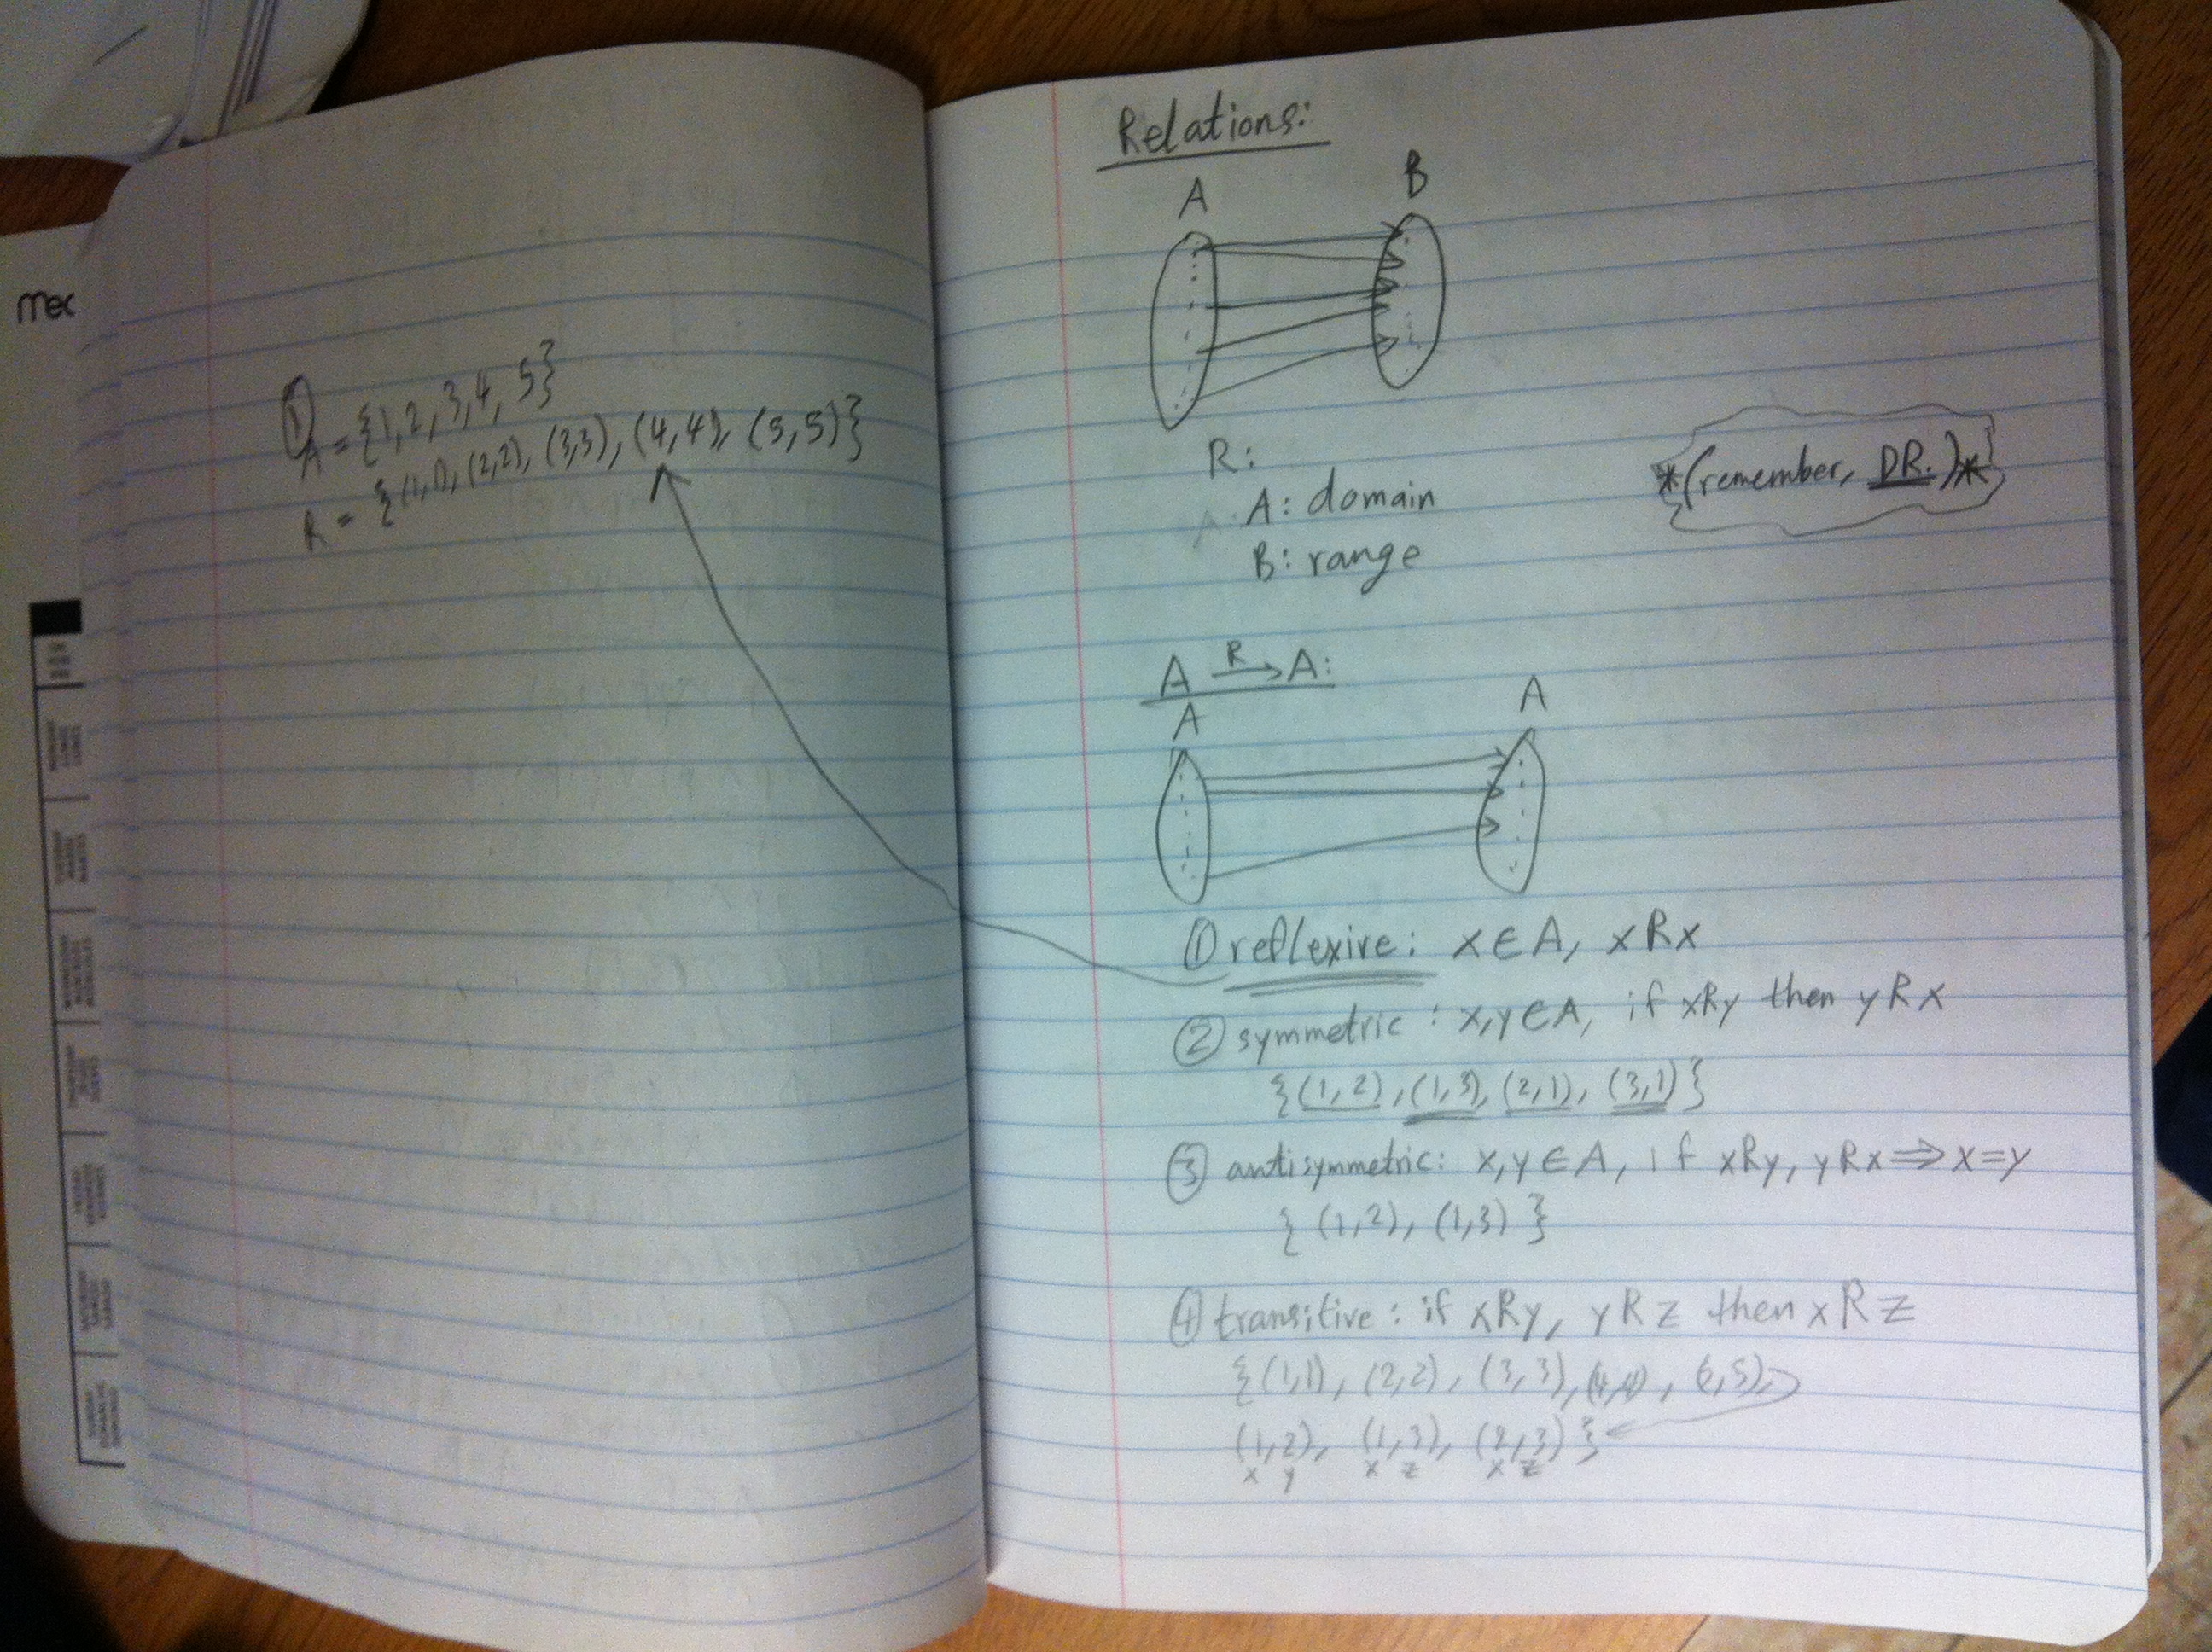 mec
① A = {1,2,3,4,5}
R = {(1,1),(2,2),(3,3),(4,4),(5,5)}
Relations:
A B
R:
A: domain
B: range
*(remember, DR.)*
A R→ A:
A A
① reflexive: x∈A, xRx
② symmetric: x,y∈A, if xRy then yRx
{(1,2),(1,3),(2,1),(3,1)}
③ antisymmetric: x,y∈A, if xRy, yRx⇒x=y
{(1,2),(1,3)}
④ transitive: if xRy, yRz then xRz
{(1,1),(2,2),(3,3),(4,4),(5,5),
(1,2),(1,3),(2,3)}
x y x z x z